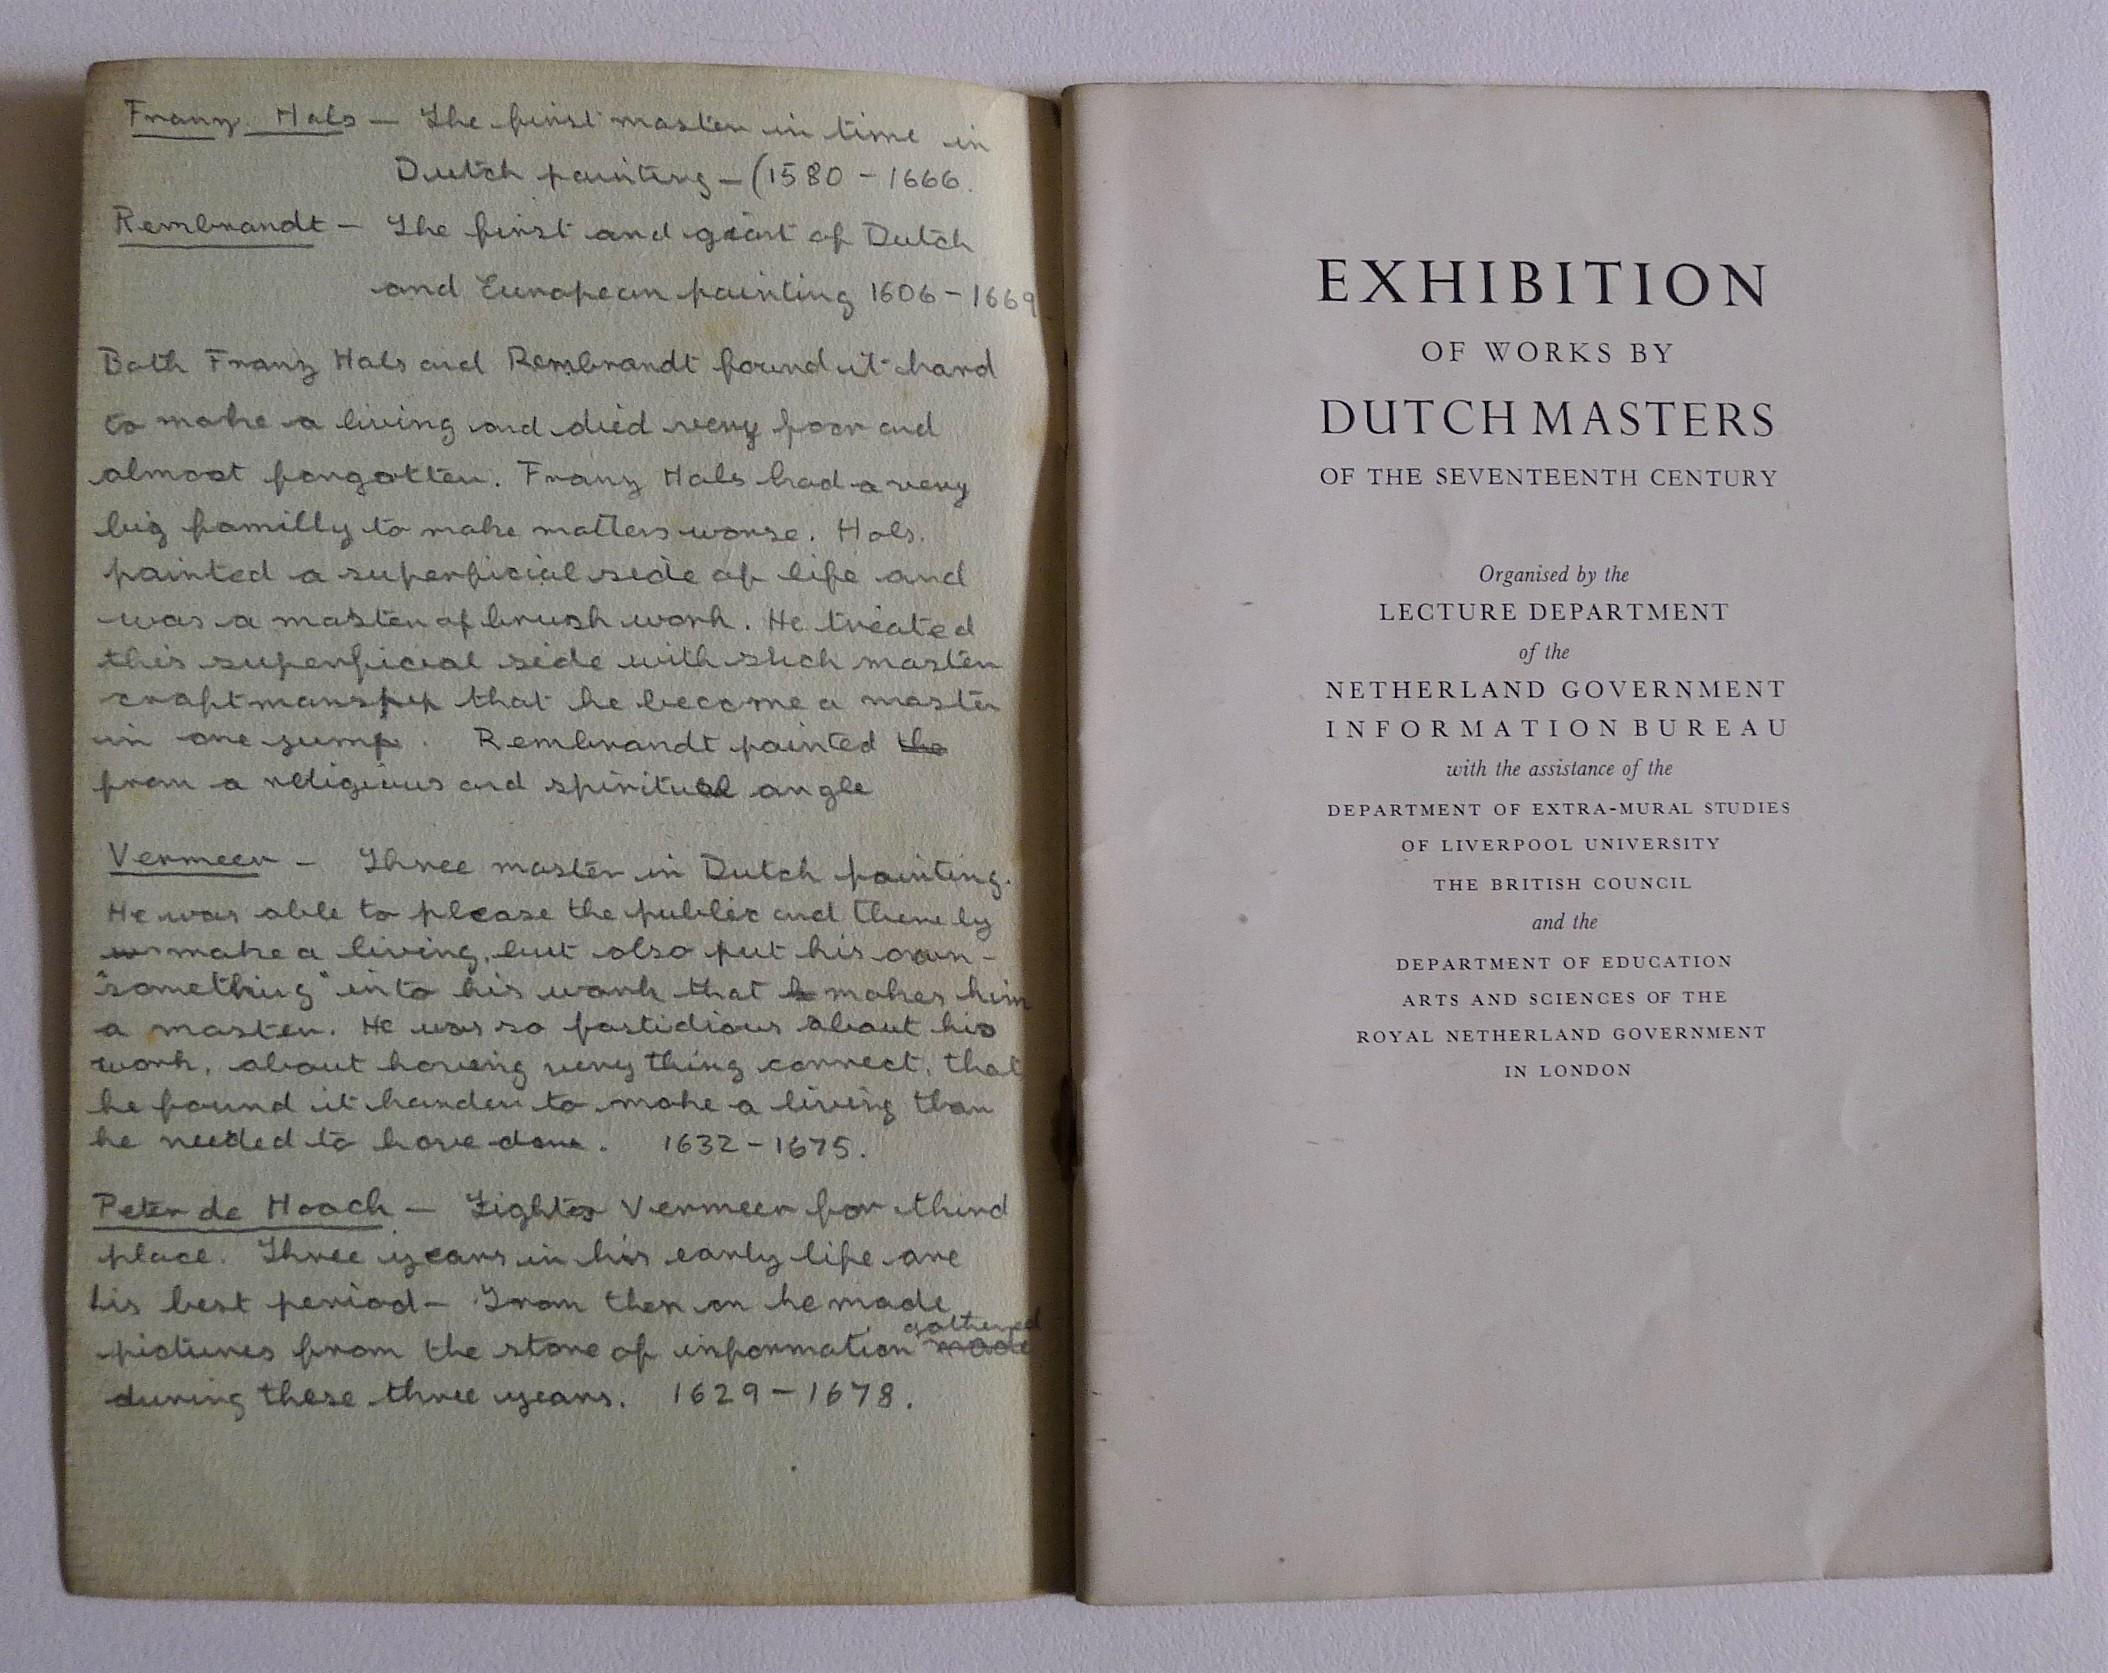 Franz Hals — The first master in time in
Dutch painting – (1580 – 1666.
Rembrandt — The first and giant of Dutch
and European painting 1606 – 1669
Both Franz Hals and Rembrandt found it hard
to make a living and died very poor and
almost forgotten. Franz Hals had a very
big familly to make matters worse. Hals.
painted a superficial side of life and
was a master of brush work. He treated
this superficial side with such master
craftmanship that he become a master
in one jump. Rembrandt painted the
from a religious and spiritual angle
Vermeer – Three master in Dutch painting.
He was able to please the public and there by
make a living, but also put his own -
"something" into his work that makes him
a master. He was so fastidious about his
work, about having very thing correct, that
he found it harder to make a living than
he needed to have done. 1632 – 1675.
Peter de Hooch — Fights Vermeer for third
place. Three years in his early life are
his best period – From then on he made
pictures from the store of information made gathered
during these three years. 1629 – 1678.
EXHIBITION
OF WORKS BY
DUTCH MASTERS
OF THE SEVENTEENTH CENTURY
Organised by the
LECTURE DEPARTMENT
of the
NETHERLAND GOVERNMENT
INFORMATION BUREAU
with the assistance of the
DEPARTMENT OF EXTRA-MURAL STUDIES
OF LIVERPOOL UNIVERSITY
THE BRITISH COUNCIL
and the
DEPARTMENT OF EDUCATION
ARTS AND SCIENCES OF THE
ROYAL NETHERLAND GOVERNMENT
IN LONDON